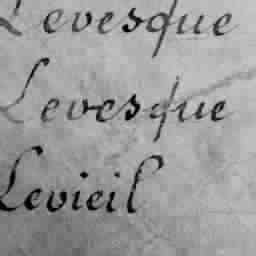 Levesque
Levesque
Levieil